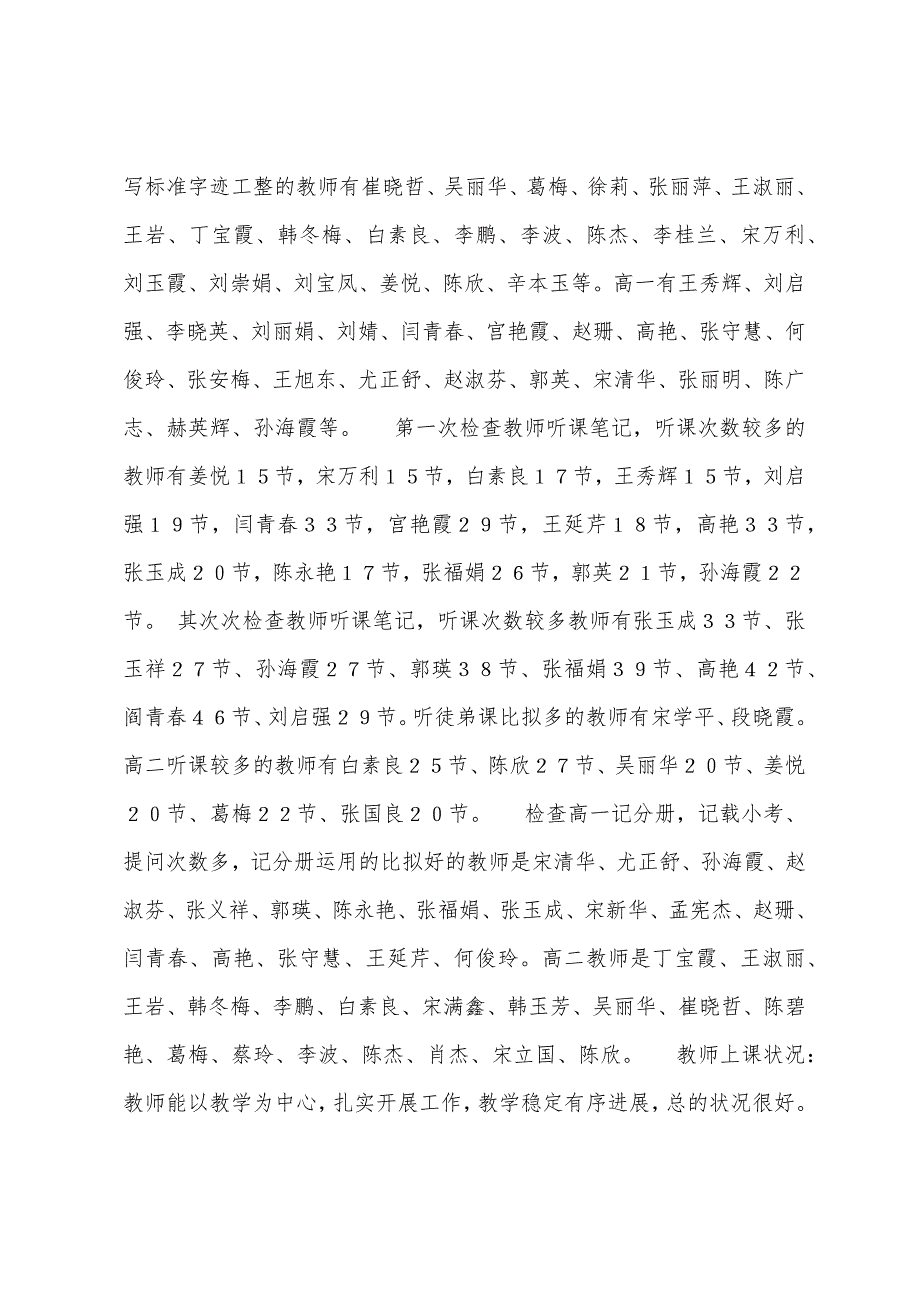 写标准字迹工整的教师有崔晓哲、吴丽华、葛梅、徐莉、张丽萍、王淑丽、
王岩、丁宝霞、韩冬梅、白素良、李鹏、李波、陈杰、李桂兰、宋万利、
刘玉霞、刘崇娟、刘宝凤、姜悦、陈欣、辛本玉等。高一有王秀辉、刘启
强、李晓英、刘丽娟、刘婧、闫青春、宫艳霞、赵珊、高艳、张守慧、何
俊玲、张安梅、王旭东、尤正舒、赵淑芬、郭英、宋清华、张丽明、陈广
志、赫英辉、孙海霞等。　　第一次检查教师听课笔记，听课次数较多的
教师有姜悦１５节，宋万利１５节，白素良１７节，王秀辉１５节，刘启
强１９节，闫青春３３节，宫艳霞２９节，王延芹１８节，高艳３３节，
张玉成２０节，陈永艳１７节，张福娟２６节，郭英２１节，孙海霞２２
节。 其次次检查教师听课笔记，听课次数较多教师有张玉成３３节、张
玉祥２７节、孙海霞２７节、郭瑛３８节、张福娟３９节、高艳４２节、
阎青春４６节、刘启强２９节。听徒弟课比拟多的教师有宋学平、段晓霞。
高二听课较多的教师有白素良２５节、陈欣２７节、吴丽华２０节、姜悦
２０节、葛梅２２节、张国良２０节。　　检查高一记分册，记载小考、
提问次数多，记分册运用的比拟好的教师是宋清华、尤正舒、孙海霞、赵
淑芬、张义祥、郭瑛、陈永艳、张福娟、张玉成、宋新华、孟宪杰、赵珊、
闫青春、高艳、张守慧、王延芹、何俊玲。高二教师是丁宝霞、王淑丽、
王岩、韩冬梅、李鹏、白素良、宋满鑫、韩玉芳、吴丽华、崔晓哲、陈碧
艳、葛梅、蔡玲、李波、陈杰、肖杰、宋立国、陈欣。　　教师上课状况：
教师能以教学为中心，扎实开展工作，教学稳定有序进展，总的状况很好。